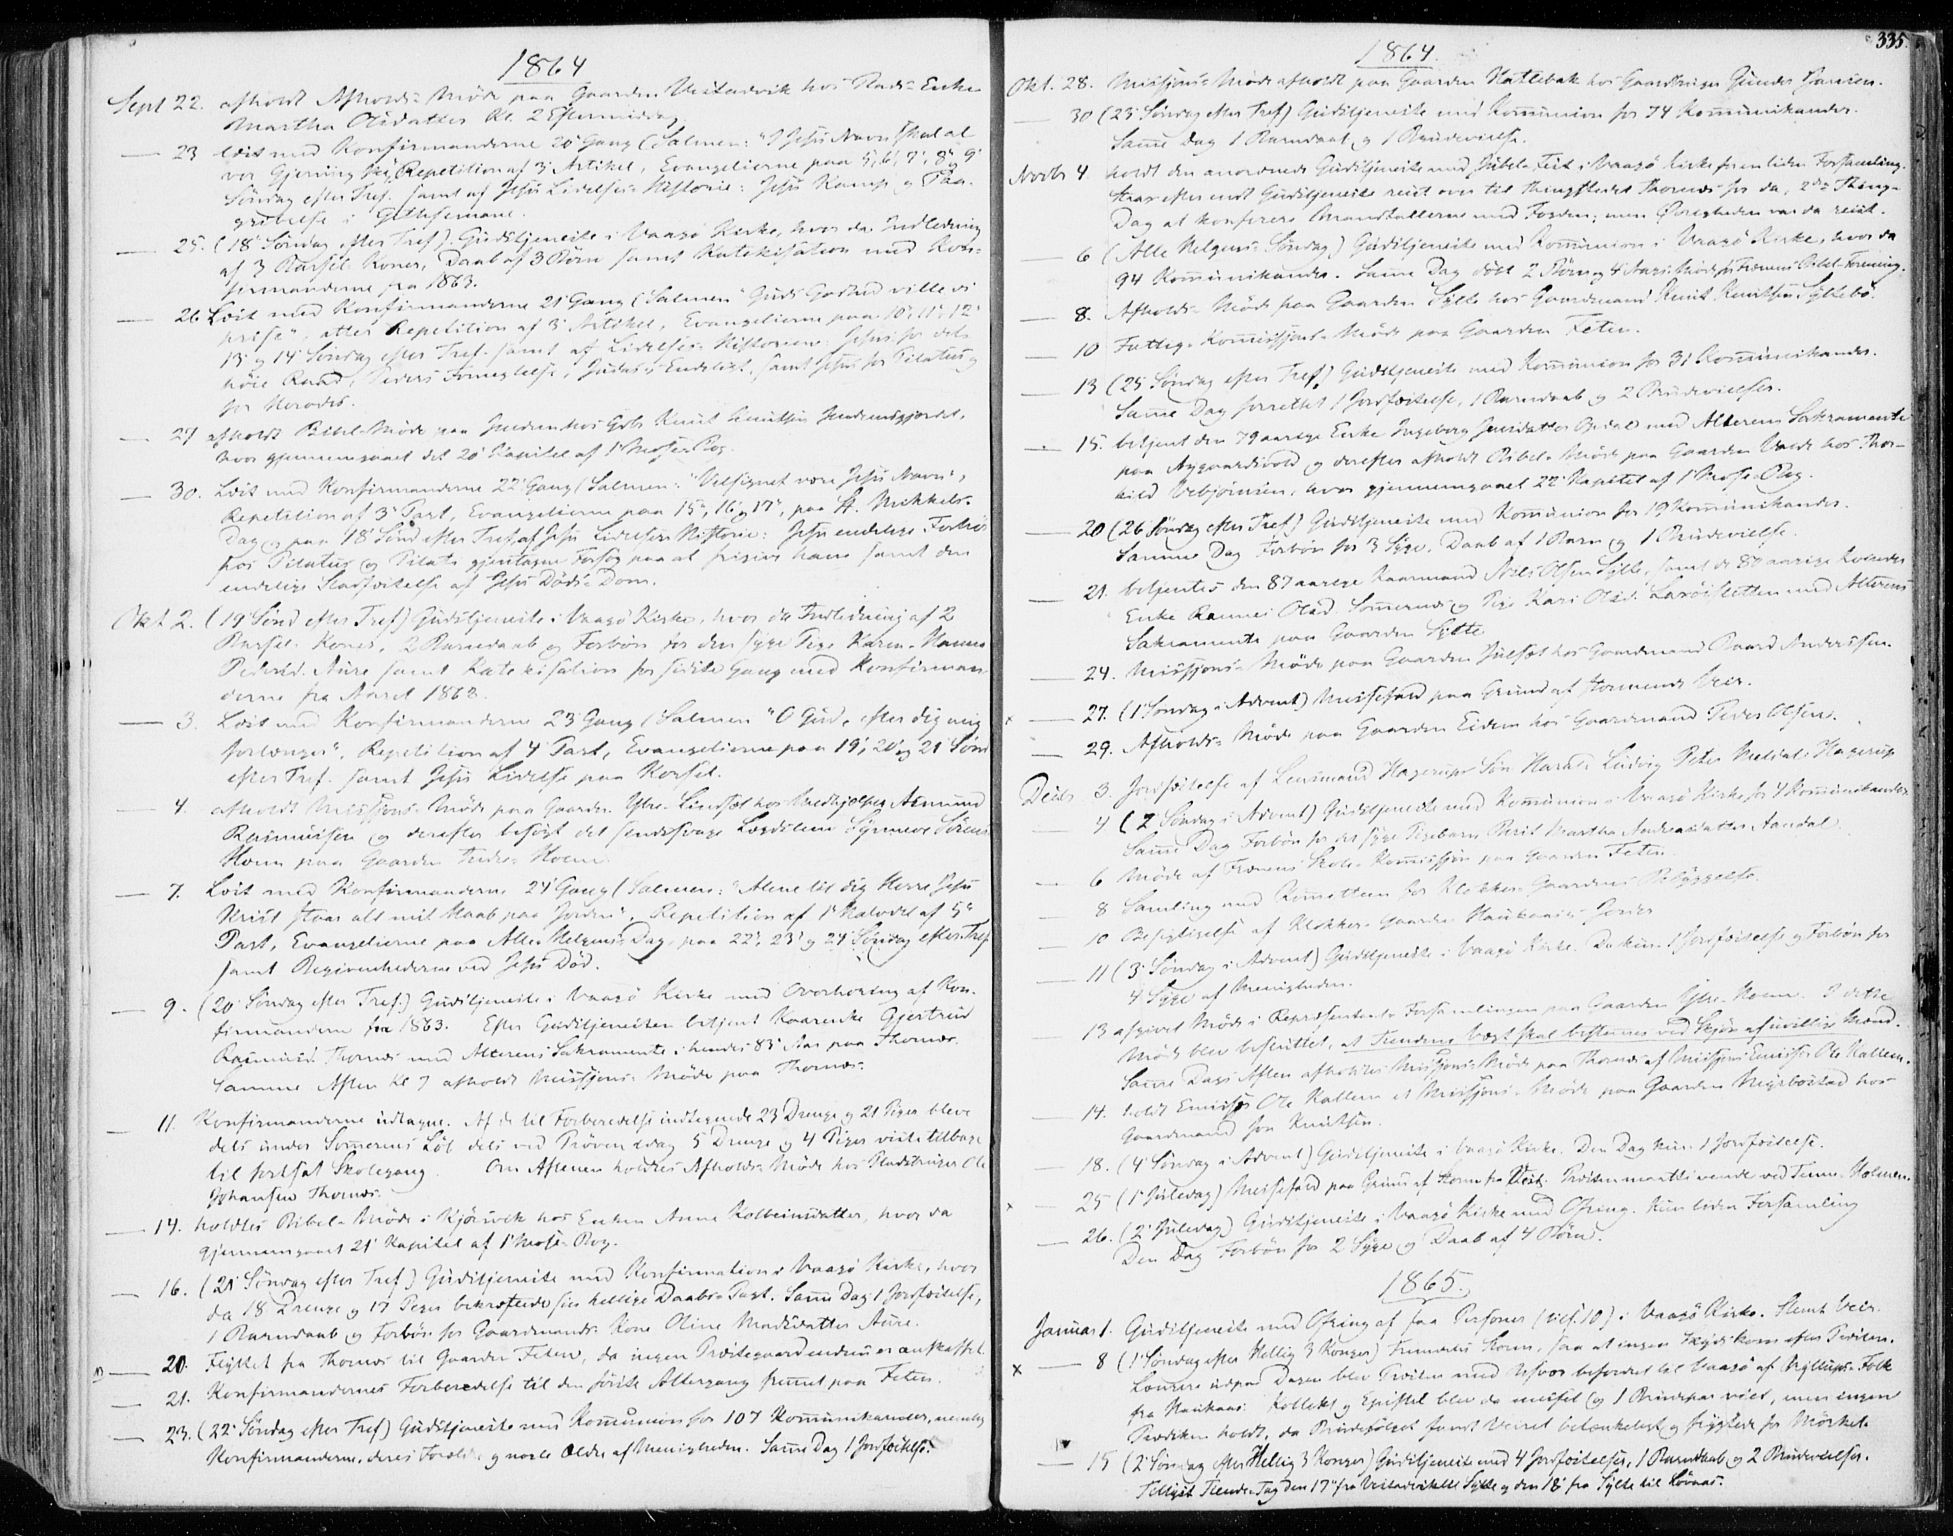 1864
Sept 22. afholdt Afholds-Møde paa Gaarden Vestadvik hos Plads-Enke
Martha Olsdatter Kl. 2 Eftermiddag
— 23 læst med Konfirmanderne 20' Gang (Salmen: "I Jesu Navn skal al
vor Gjerning ske", Repetition af 3' Artikel, Evangelierne paa 5', 6', 7', 8' og 9'
Søndag efter Tref. samt af Jesu Lidelses-Historie: Jesu Kamp og Paa-
gribelse i Gethsemane.
— 25. (18' Søndag efter Tref.) Gudstjeneste i Vaagø Kirke, hvor da Indledning
af 3 Barsel-Koner, Daab af 3 Børn samt Katekisation med Kon-
firmanderne fra 1863.
— 26. Læst med Konfirmanderne 21' Gang (Salmen "Guds Godhed ville vi
prise", atter Repetition af 3' Artikel, Evangelierne paa 10', 11', 12'
13' og 14' Søndag efter Tref. samt af Lidelses-Historien: Jesus for det
høie Raad, Peders Fornegtelse, Judas's Endeligt, samt Jesus for Pilatus og
for Herodes.
— 27 afholdt Bibel-Møde paa hos Gbr. Knut Knutsen
hvor gjennemgaaet det 20' Kapitel af 1' Mose-Bog.
— 30. Læst med Konfirmanderne 22' Gang (Salmen: "Velsignet være Jesu Navn",
Repetition af 3' Part, Evangelierne paa 15', 16' og 17', paa St. Mikkels-
Dag og paa 18' Sønd efter Tref. af Jesu Lidelses Historie: Jesu endelige Forhør
hos Pilatus og Pilati gjentagne Forsøg paa at frigive ham samt den
endelige Stadfæstelse af Jesu Døds-Dom.
Okt 2. (19' Sønd efter Tref) Gudstjeneste i Vaagø Kirke, hvor da Indledning af 2
Barsel-Koner, 2 Barnedaab og Forbøn for den syge Pige Karen-Hanna
Pedersd. Aure samt Katekisation for sidste Gang med Konfirman-
derne fra Aaret 1863.
— 3. Læst med Konfirmanderne 23' Gang (Salmen "O Gud, efter dig mig
forlænges", Repetition af 4' Part, Evangelierne paa 19', 20' og 21' Sønd
efter Tref. samt Jesu Lidelse paa Korset.
— 4. afholdt Missjons-Møde paa Gaarden Ytre-Lindset hos Medhjelper Asmund
Rasmussen og derefter besøgt det sindssvage Lægdslem Synneve Sørens
Hoem paa Gaarden Indre-Hoem.
— 7. Læst med Konfirmanderne 24' Gang (Salmen: "Alene til dig Herre Jesu
Krist staar alt mit Haab paa Jorden", Repetition af 1' Halvdel af 5'
Part, Evangelierne paa Alle-Helgens-Dag, paa 22', 23' og 24' Søndag efter Tref
samt Begivenhederne ved Jesu Død.
— 9. (20' Søndag efter Tref.) Gudstjeneste i Vaagø Kirke med Overhøring af Kon-
firmanderne fra 1863. Efter Gudstjenesten betjent Kaarenke Gjertrud
Rasmusd. Thornes med Alterens Sakramente i hendes 83' Aar paa Thornes.
Samme Aften Kl 7 afholdt Missjons-Møde paa Thornes.
— 11. Konfirmanderne udtagne. Af de til Forberedelse indtegnede 23 Drenge og 21 Piger bleve
dels under Sommerens Løb dels ved Prøven idag 5 Drenge og 4 Piger viste tilbage
til fortsat Skolegang. Om Aftenen holdtes Afholds-Møde hos Pladsbruger Ole
Johansen Thornes.
— 14. holdtes Bibel-Møde i Kjørsvik hos Enken Anne Kolbeinsdatter, hvor da
gjennemgaaet 21' Kapitel af 1' Mose-Bog.
— 16. (21' Søndag efter Tref.) Gudstjeneste med Konfirmation i Vaagø Kirke, hvor
da 18 Drenge og 17 Piger bekræftede sin hellige Daabs-Pagt. Samme Dag 1 Jordfæstelse,
1 Barnedaab og Forbøn for Gaardmands-Kone Oline Madsdatter Aure.
— 20. Flyttet fra Thornes til Gaarden Feten, da ingen Præstegaard endnu er anskaffet.
— 21. Konfirmandernes Forberedelse til den første Altergang fremmet paa Feten.
— 23. (22' Søndag efter Tref) Gudstjeneste med Kommunion for 107 Kommunikanter, nemlig
Konfirmanderne, deres Foreldre og nogle Ældre af Menigheden. Samme Dag 1 Jordfæstelse.
335.
1864.
Okt. 28. Missjons-Møde afholdt paa Gaarden Hatlebak hos Gaardbruger Gunder Hansen.
— 30 (23' Søndag efter Tref) Gudstjeneste med Kommunion for 74 Kommunikanter.
Samme Dag 1 Barnedaab og 1 Brudevielse.
Novbr 4. holdt den anordnede Gudstjeneste med Jubel-Fest i Vaagø Kirke for en liden Forsamling.
Strax efter endt Gudstjeneste reist over til Thingstedet Thornes for da, 2den Thing-
Dag at konferere Mandtallerne med Fogden; men Øvrigheden var da reist.
— 6 (Alle Helgens-Søndag) Gudstjeneste med Kommunion i Vaagø Kirke, hvor da
94 Kommunikanter. Samme Dag døbt 2 Børn og Aars-Møde for Frænens Bibel-Forening.
— 8. Afholds-Møde paa Gaarden Sylte hos Gaardmand Knut Knutsen Syltebø.
— 10 Fattig-Kommissjons-Møde paa Gaarden Feten.
— 13 (25' Søndag efter Tref) Gudstjeneste med Kommunion for 31 Kommunikanter.
Samme Dag forrettet 1 Jordfæstelse, 1 Barnedaab og 2 Brudevielser.
— 15. betjent den 79 aarige Enke Ingeborg Jensdatter med Alterens Sakramente
paa og derefter afholdt Bibel-Møde paa Gaarden hos Thor-
kild Vebjørnsen, hvor gjennemgaaet 22' Kapitel af 1' Mose-Bog.
— 20 (26' Søndag efter Tref) Gudstjeneste med Kommunion for 19 Kommunikanter.
Samme Dag Forbøn for 3 Syge, Daab af 1 Barn og 1 Brudevielse.
— 21. betjentes den 87 aarige Kaarmand Nils Olsen Sylte, samt de 80 aarige Kvinder
Enke Rannei Olsd. Sommernes og Pige Kari Olsd. med Alterens
Sakramente paa Gaarden Sylte
— 24. Missjons-Møde paa Gaarden Julset hos Gaardmand Baard Anderssen.
× — 27. (1' Søndag i Advent) Messefald paa Grund af stormende Veir.
— 29. Afholds-Møde paa Gaarden Eidem hos Gaardmand Peder Olsen.
Decbr 3. Jordfæstelse af Lensmand Hagerups Søn Harald Ludvig Peter Meldal Hagerup
— 4 (2' Søndag i Advent) Gudstjeneste med Kommunion i Vaagø Kirke for 4 Kommunikanter
Samme Dag Forbøn for det syge Pigebarn Berit Martha Andreasdatter Aandal.
— 6 Møde af Frænens Skole-Kommissjon paa Gaarden Feten
— 8 Samling med Komiteen for Klokker-Gaardens Bebyggelse.
— 10 Besigtigelse af Klokker-Gaarden Haukaas's Jorder
— 11 (3' Søndag i Advent) Gudstjeneste i Vaagø Kirke. Da kun 1 Jordfæstelse og Forbøn for
4 Syge af Menigheden.
— 13 afgivet Møde i Repræsentant-Forsamlingen paa Gaarden Ytre-Hoem. I dette
Møde blev besluttet, at Tiendens Vægt skal bestemmes ved Skjøn af uvillige Mænd.
Samme Dags Aften afholdtes Missjons-Møde paa Thornes af Missjons-Emissær Ole Kallem.
— 14. holdt Emissær Ole Kallem et Missjons-Møde paa Gaarden Mærbøstad hos
Gaardmand Jon Knutsen.
— 18. (4' Søndag i Advent) Gudstjeneste i Vaagø Kirke. Den Dag kun 1 Jordfæstelse.
× — 25 (1' Juledag) Messefald paa Grund af Storm fra Vest. Præsten maatte vende ved Holmen.
— 26. (2' Juledag) Gudstjeneste i Vaagø Kirke med Ofring. Kun liden Forsamling
Den Dag Forbøn for 2 Syge og Daab af 4 Børn.
1865.
Januar 1. Gudstjeneste med Ofring af faa Personer (circ. 10) i Vaagø Kirke. Slemt Veir.
× — 8 (1' Søndag efter Hellig 3 Konger) Storm, saa at ingen Skyds kom efter Præsten.
Længere udpaa Dagen blev Præsten med befordret til Vaagø af Bryllups-Folk
fra Haukaas. Kollekt og Epistel blev da messet og 1 Brudepar viet, men ingen
Prædiken holdt, da Brudefølget fandt Veiret betænkeligt og frygtede for Mørket.
— 15 (2' Søndag efter Hellig 3 Konger) Gudstjeneste med 4 Jordfæstelser, 1 Barnedaab og 2 Brudevielser.
Tiende-Tog den 17' fra Vestad til Sylte og den 18' fra Sylte til